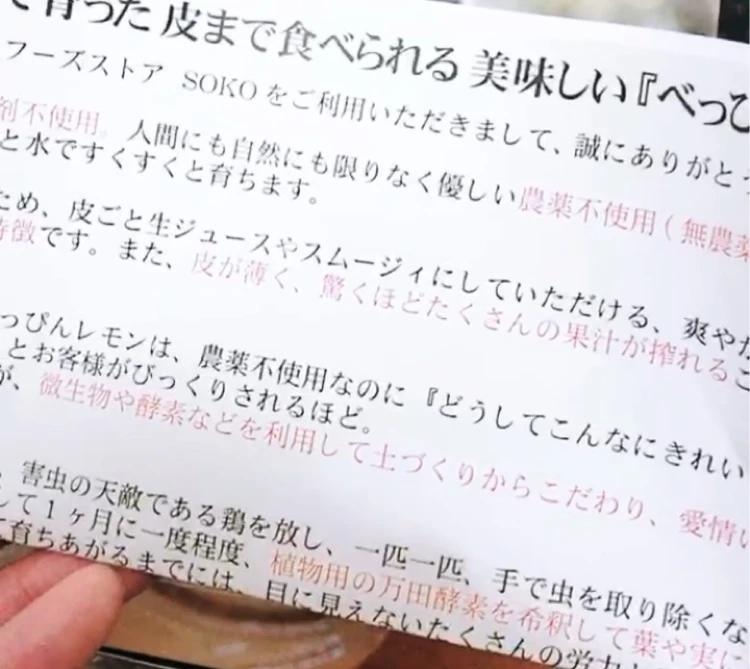 て育った 皮まで食べられる 美味しい『べっぴ
フーズストア SOKOをご利用いただきまして、誠にありがとう
剤不使用。人間にも自然にも限りなく優しい農薬不使用(無農薬
と水ですくすくと育ちます。
ため、皮ごと生ジュースやスムージィにしていただける、爽やか
特徴です。また、皮が薄く、驚くほどたくさんの果汁が搾れるこ
っぴんレモンは、農薬不使用なのに『どうしてこんなにきれい
とお客様がびっくりされるほど。
が、微生物や酵素などを利用して土づくりからこだわり、愛情い
、害虫の天敵である鶏を放し、一匹一匹、手で虫を取り除くな
して1ヶ月に一度程度、植物用の万田酵素を希釈して葉や実に
て育ちあがるまでには、目に見えないたくさんの労力